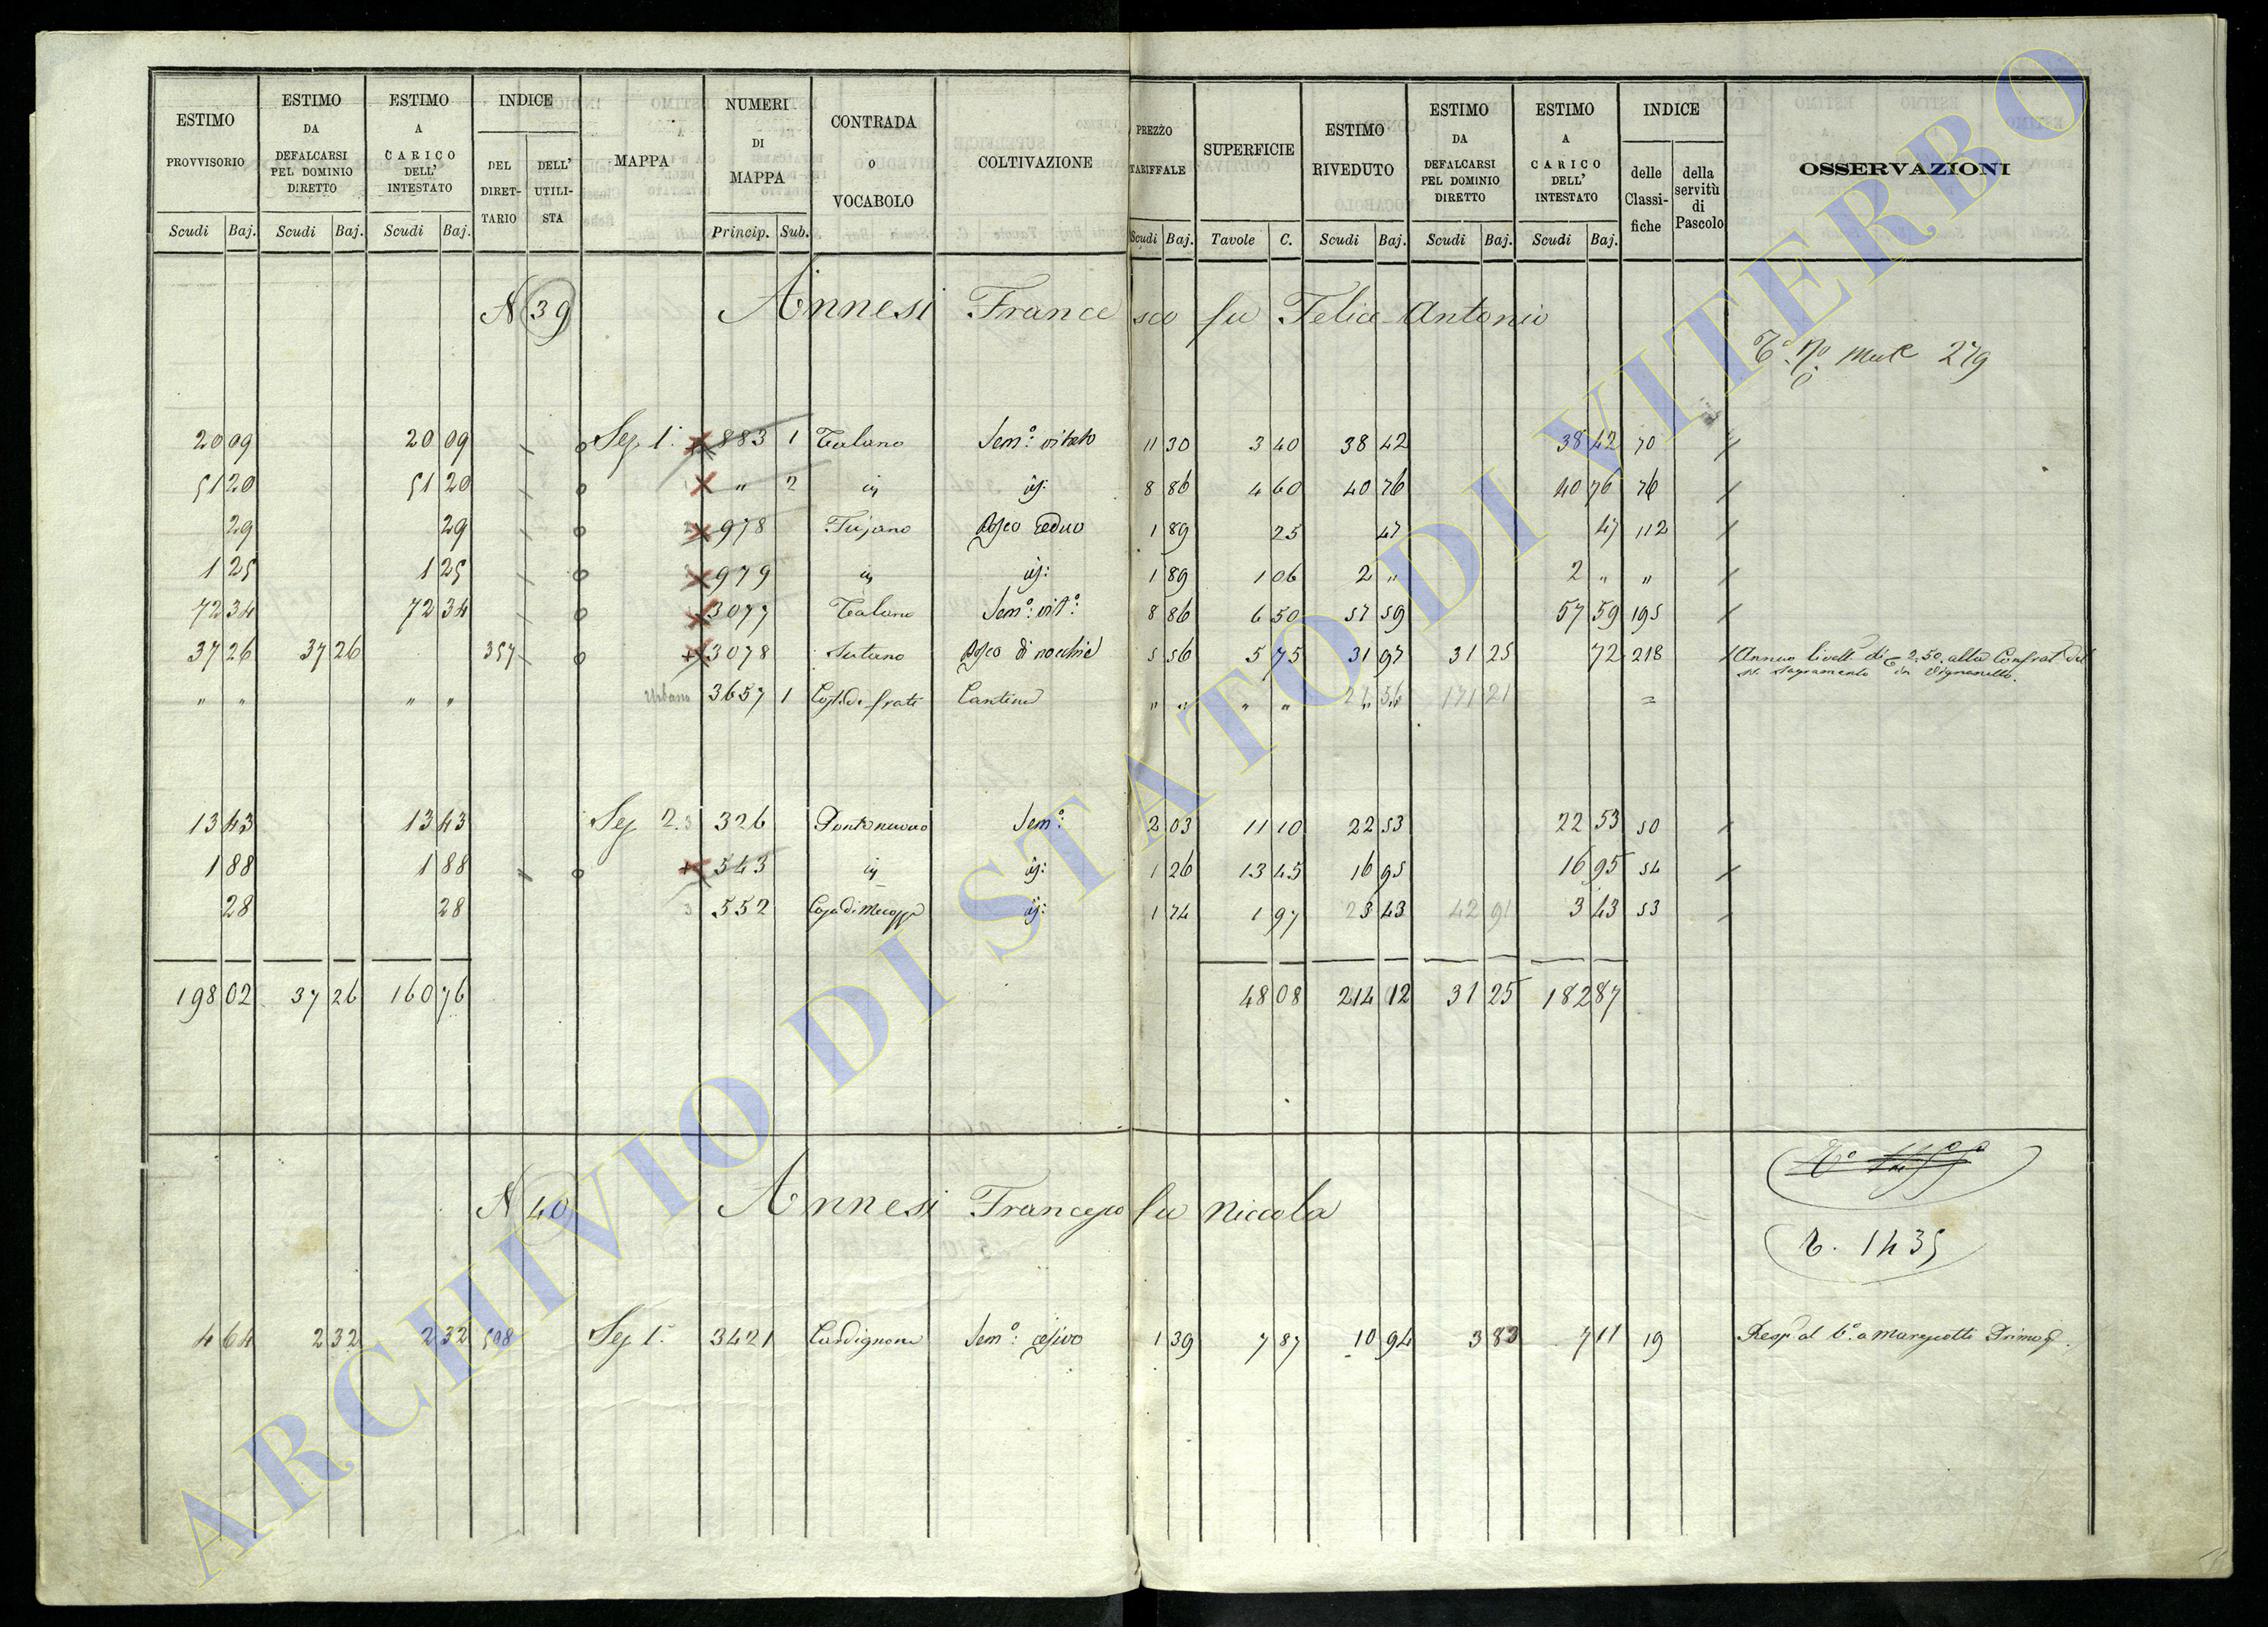 ESTIMO PROVVISORIO Scudi Baj.
ESTIMO DA DEFALCARSI PEL DOMINIO DIRETTO Scudi Baj.
ESTIMO A CARICO DELL' INTESTATO Scudi Baj.
INDICE DEL DIRETTARIO DELL' UTILISTA
MAPPA
NUMERI DI MAPPA Princip. Sub.
CONTRADA o VOCABOLO
COLTIVAZIONE
PREZZO TARIFFALE Scudi Baj.
SUPERFICIE Tavole C.
ESTIMO RIVEDUTO Scudi Baj.
ESTIMO DA DEFALCARSI PEL DOMINIO DIRETTO Scudi Baj.
ESTIMO A CARICO DELL' INTESTATO Scudi Baj.
INDICE delle Classifiche della servitù di Pascolo
OSSERVAZIONI
N 39 Annesi Francesco fu Felice Antonio
279
20 09 20 09 Sez. 1ª 883 1 Talano Sem.º vitato 11 30 3 40 38 42 38 42 70
51 20 51 20 " 2 id. 8 86 4 60 40 76 40 76 76
29 29 978 1 89 25 47 47 112
1 25 1 25 979 id. 1 89 1 06 2 " 2 " "
72 34 72 34 3077 Talano Sem.º vit.º 8 86 6 50 57 59 57 59 195
37 26 37 26 357 3078 5 56 5 75 31 97 31 25 72 218 Annuo livell. di 2.50 alla Confrat. del
SS. Sagramento in Vignanello.
" " " " Urbano 3657 1 Cantina " " " " =
13 43 13 43 Sez. 2. 326 Pontenuovo Sem.º 2 03 11 10 22 53 22 53 50
1 88 1 88 543 id. 1 26 13 45 16 95 16 95 54
28 28 552 id. 1 74 1 97 3 43 3 43 53
198 02 37 26 160 76 48 08 214 12 31 25 182 87
N 40 Annesi Francesco fu Niccola
1435
4 64 2 32 2 32 598 Sez. 1ª 3421 Cardignone Sem.º 1 39 7 87 10 94 3 83 7 11 19
ARCHIVIO DI STATO DI VITERBO